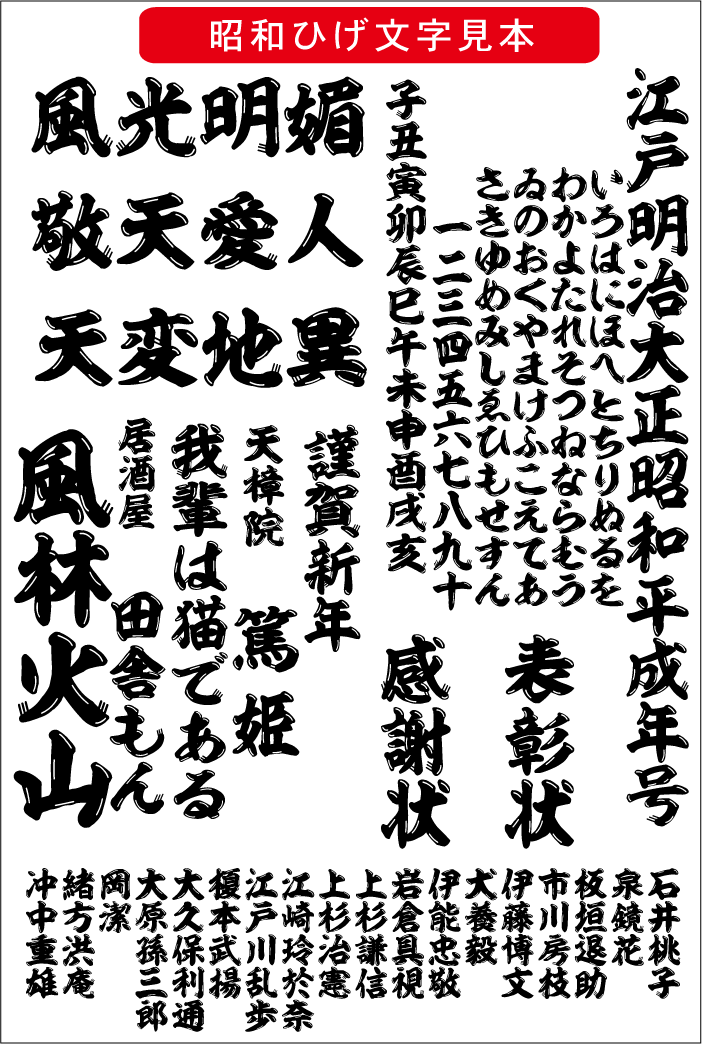 昭和ひげ文字見本
江戸明治大正昭和平成年号
いろはにほへとちりぬるを
わかよたれそつねならむう
ゐのおくやまけふこえてあ
さきゆめみしゑひもせすん
一二三四五六七八九十
子丑寅卯辰巳午未申酉戌亥
表彰状
感謝状
風光明媚
敬天愛人
天変地異
謹賀新年
天樟院 篤姫
我輩は猫である
居酒屋 田舎もん
風林火山
石井桃子
泉鏡花
板垣退助
市川房枝
伊藤博文
犬養毅
伊能忠敬
岩倉具視
上杉謙信
上杉治憲
江崎玲於奈
江戸川乱歩
榎本武揚
大久保利通
大原孫三郎
岡潔
緒方洪庵
冲中重雄